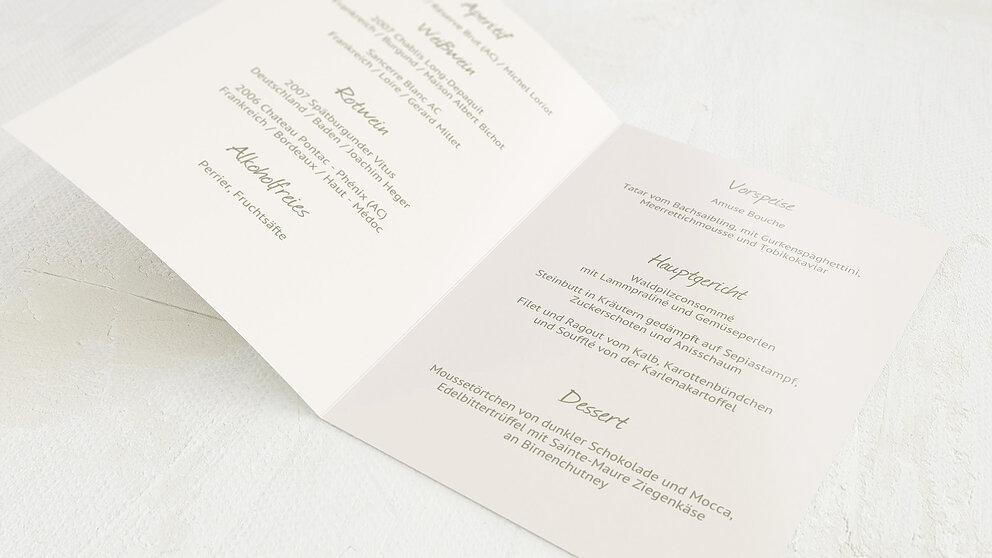 Aperitif
Réserve Brut (AC) / Michel Loriot
Weißwein
2007 Chablis Long-Depaquit
Frankreich / Burgund / Maison Albert Bichot
Sancerre Blanc AC
Frankreich / Loire / Gerard Millet
Rotwein
2007 Spätburgunder Vitus
Deutschland / Baden / Joachim Heger
2006 Chateau Pontac - Phénix (AC)
Frankreich / Bordeaux / Haut - Médoc
Alkoholfreies
Perrier, Fruchtsäfte
Vorspeise
Amuse Bouche
Tatar vom Bachsaibling, mit Gurkenspaghettini,
Meerrettichmousse und Tobikokaviar
Hauptgericht
Waldpilzconsommé
mit Lammpraliné und Gemüseperlen
Steinbutt in Kräutern gedämpft auf Sepiastampf,
Zuckerschoten und Anisschaum
Filet und Ragout vom Kalb, Karottenbündchen
und Soufflé von der Karlenakartoffel
Dessert
Moussetörtchen von dunkler Schokolade und Mocca,
Edelbittertrüffel mit Sainte-Maure Ziegenkäse
an Birnenchutney